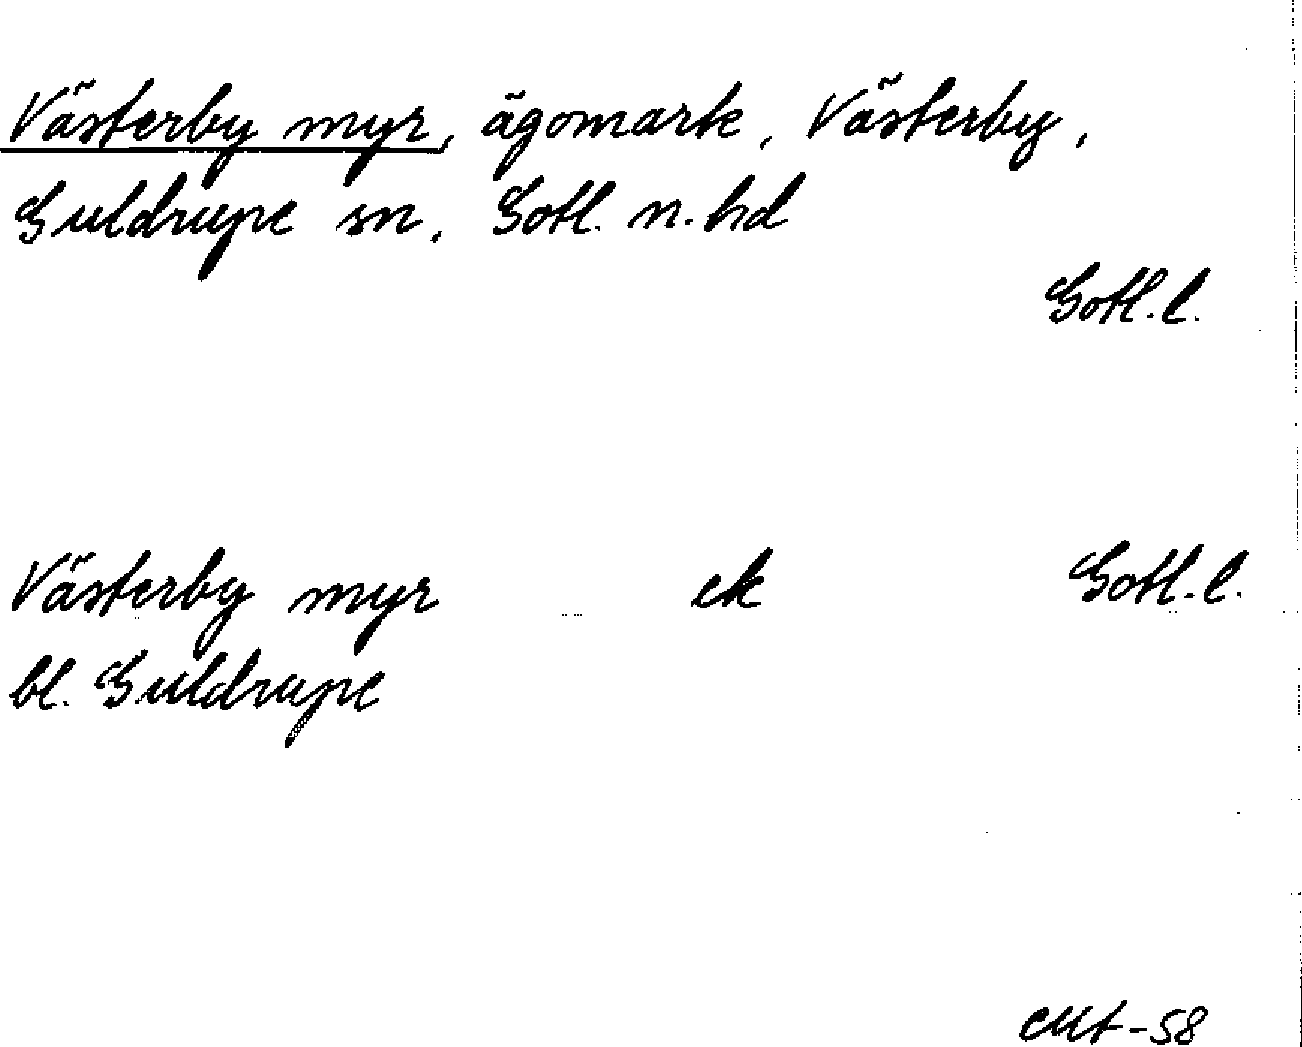 Västerby myr, ägomark, Västerby,
Guldrupe sn, Gotl. n. hd
Gotl. l.
Västerby myr ek Gotl. l.
bl. Guldrupe